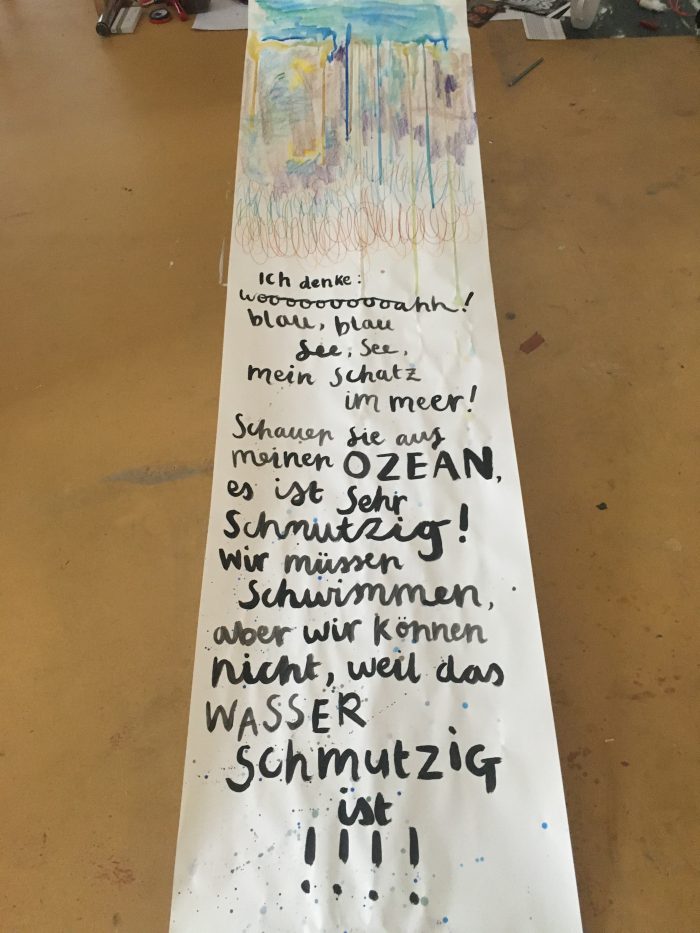 Ich denke:
woooooooooahh!
blau, blau
See, See,
mein Schatz
im meer!
Schauen Sie auf
meinen OZEAN,
es ist Sehr
Schmutzig!
Wir müssen
Schwimmen,
aber wir können
nicht, weil das
WASSER
SCHMUTZIG
ist
!!!!